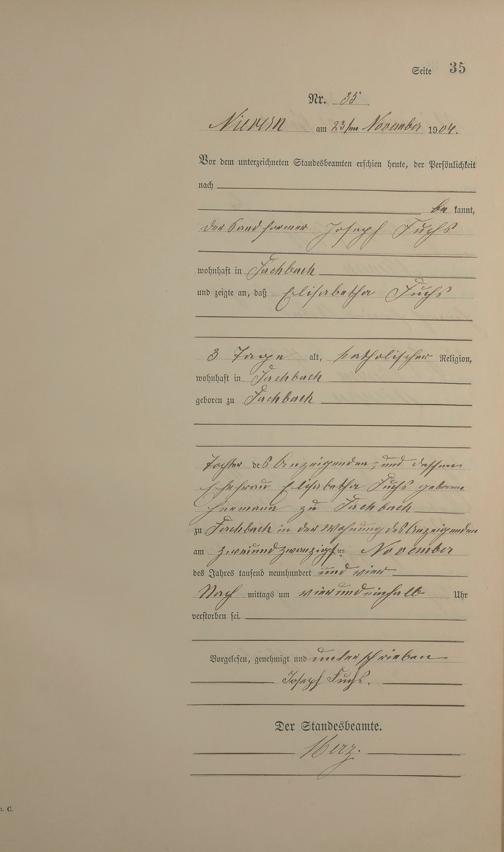 Seite 35
Nr. 35
Nievern am 23ten November 1904.
Vor dem unterzeichneten Standesbeamten erschien heute, der Persönlichkeit
nach
be kannt,
der Sandformer Joseph Fuchs
wohnhaft in Fachbach
und zeigte an, daß Elisabetha Fuchs
3 Tage alt, katholischer Religion,
wohnhaft in Fachbach
geboren zu Fachbach
Tochter des Anzeigenden und dessen
Ehefrau Elisabetha Fuchs geborene
Hermann zu Fachbach
zu Fachbach in der Wohnung des Anzeigenden
am zweiundzwanzigsten November
des Jahres tausend neunhundert und vier
Nach mittags um vier und einhalb Uhr
verstorben sei.
Vorgelesen, genehmigt und unterschrieben
Joseph Fuchs.
Der Standesbeamte.
Merz.
C.